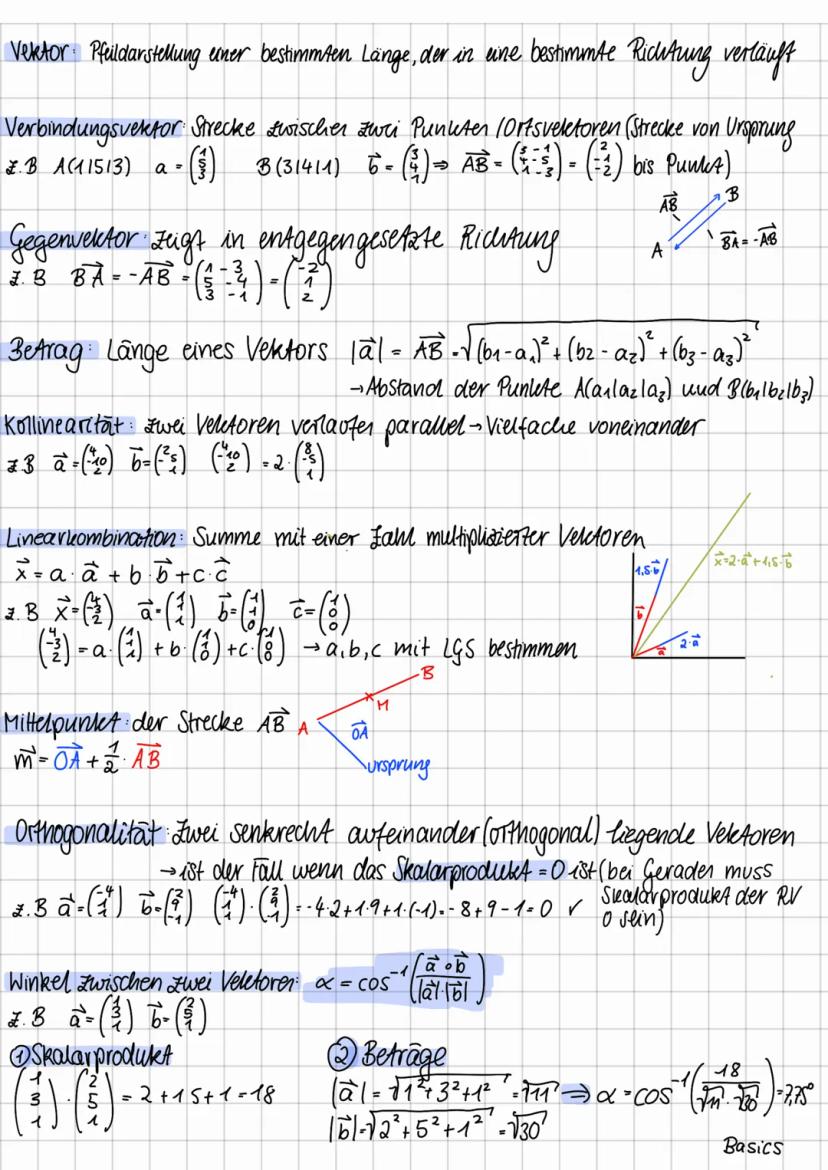 Vektor: Pfeildarstellung einer bestimmten Länge, der in eine bestimmte Richtung verläuft
Verbindungsvektor: Strecke zwischen zwei Punkten / Ortsvektoren (Strecke von Ursprung
z.B A(1|5|3) a = (1 5 3) B(3|4|1) b⃗ = (3 4 1) ⇒ AB⃗ = (3-1 4-5 1-3) = (2 -1 -2) bis Punkt)
AB⃗ B
A BA⃗ = -AB⃗
Gegenvektor: zeigt in entgegengesetzte Richtung
z.B BA⃗ = -AB⃗ = (1-3 5-4 3-1) = (-2 1 2)
Betrag: Länge eines Vektors |a⃗| = AB⃗ = √((b1-a1)² + (b2-a2)² + (b3-a3)²)
→ Abstand der Punkte A(a1|a2|a3) und B(b1|b2|b3)
Kollinearität: zwei Vektoren verlaufen parallel → Vielfache voneinander
z.B a⃗ = (4 -10 2) b⃗ = (2 -5 1) (4 -10 2) = 2 · (8 -5 1)
Linearkombination: Summe mit einer Zahl multiplizierter Vektoren
x⃗ = a · a⃗ + b · b⃗ + c · c⃗
z.B x⃗ = (4 -3 2) a⃗ = (1 1 1) b⃗ = (1 1 0) c⃗ = (1 0 0)
(4 -3 2) = a · (1 1 1) + b · (1 1 0) + c · (1 0 0) → a, b, c mit LGS bestimmen
1,5·b⃗ x⃗=2·a⃗+1,5·b⃗
b⃗
a⃗ 2·a⃗
Mittelpunkt: der Strecke AB⃗
m⃗ = OA⃗ + 1/2 · AB⃗
B
M
A
OA⃗
ursprung
Orthogonalität: zwei senkrecht aufeinander (orthogonal) liegende Vektoren
→ ist der Fall wenn das Skalarprodukt = 0 ist (bei Geraden muss
Skalarprodukt der RV
0 sein)
z.B a⃗ = (-4 1 1) b⃗ = (2 9 -1) (-4 1 1) · (2 9 -1) = -4·2+1·9+1·(-1) = -8+9-1 = 0 ✓
Winkel zwischen zwei Vektoren: α = cos⁻¹ (a⃗ ∘ b⃗ / |a⃗|·|b⃗|)
z.B a⃗ = (1 3 1) b⃗ = (2 5 1)
① Skalarprodukt
(1 3 1) · (2 5 1) = 2+15+1 = 18
② Beträge
|a⃗| = √(1²+3²+1²) = √11 ⇒ α = cos⁻¹ (18 / √11 · √30) = 7,75°
|b⃗| = √(2²+5²+1²) = √30
Basics